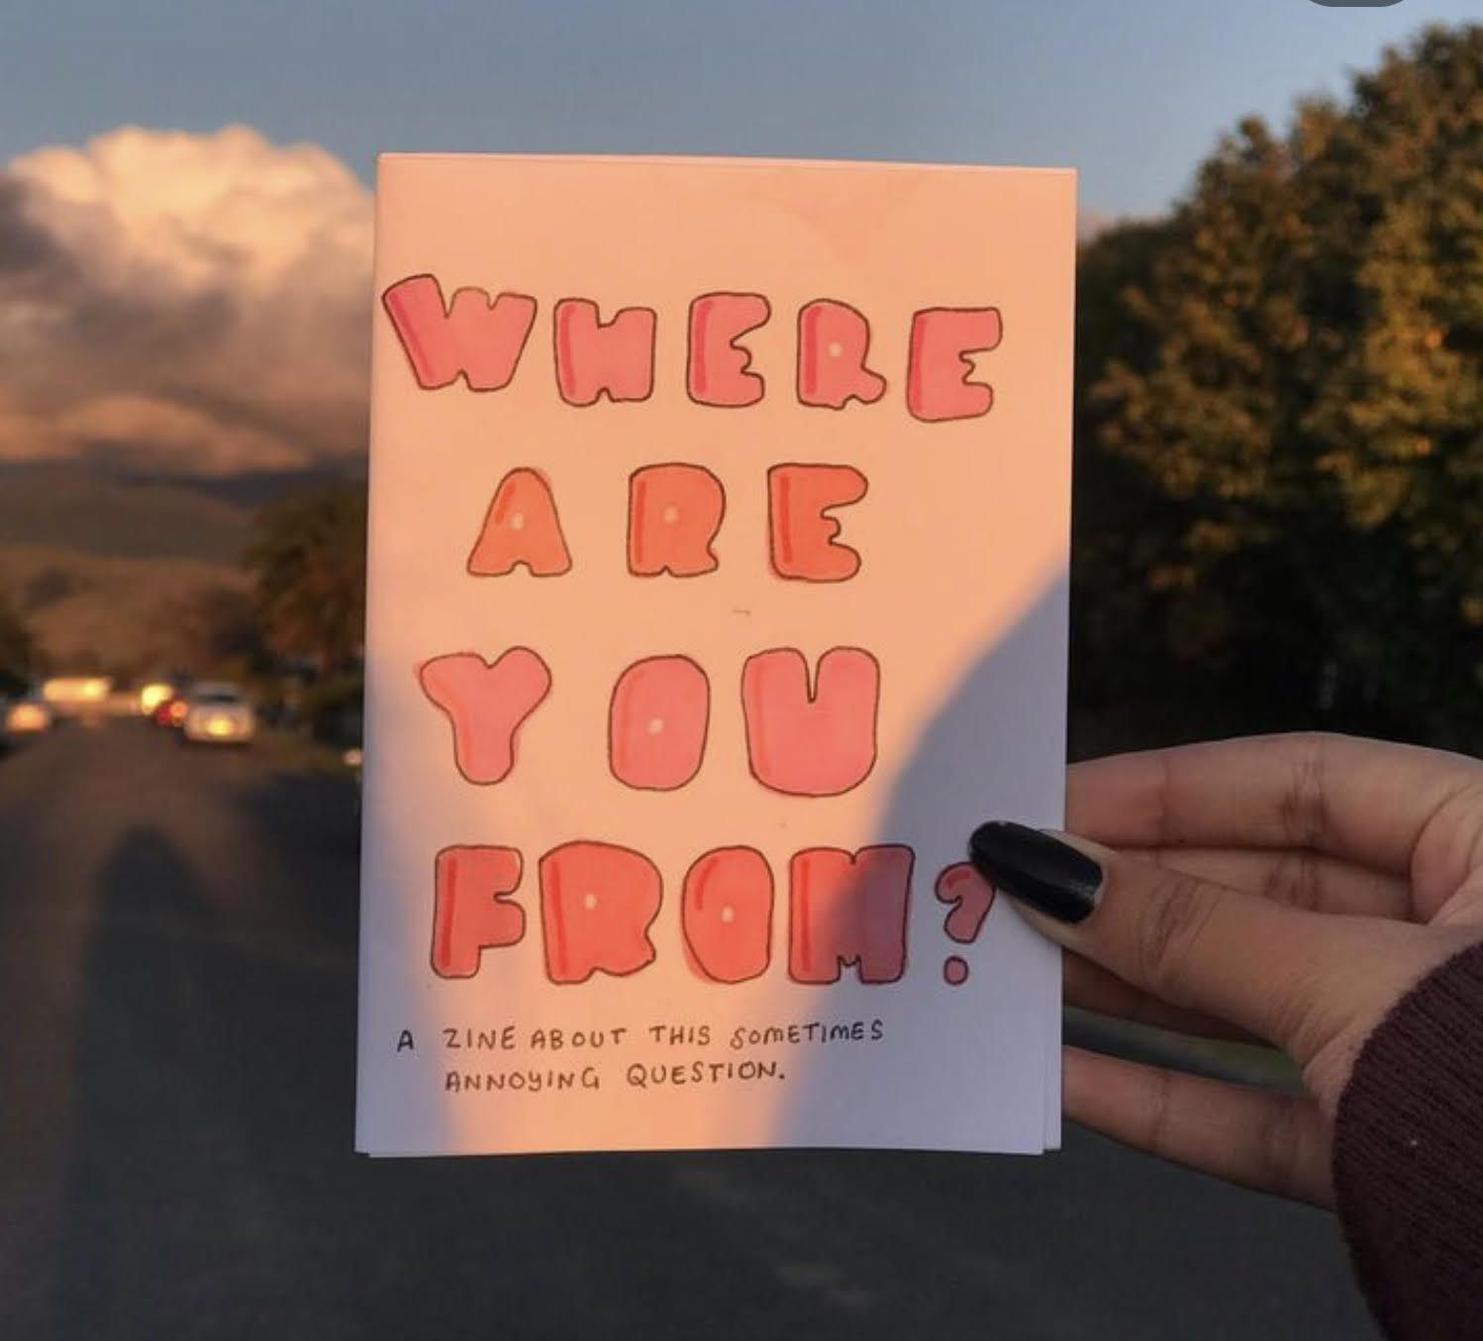 WHERE
ARE
YOU
FROM?
A ZINE ABOUT THIS SOMETIMES
ANNOYING QUESTION.